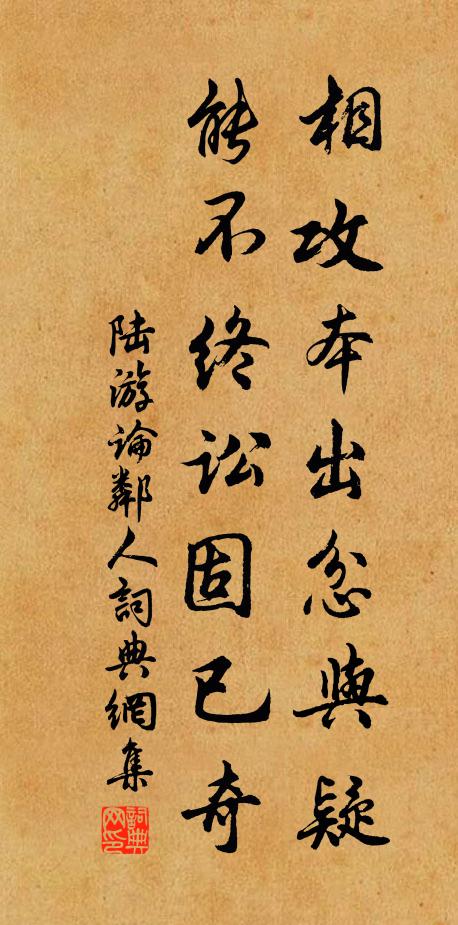 相攻本出忿與疑
能不終訟固已奇
陆游論鄰人詞典網集
詞典网印